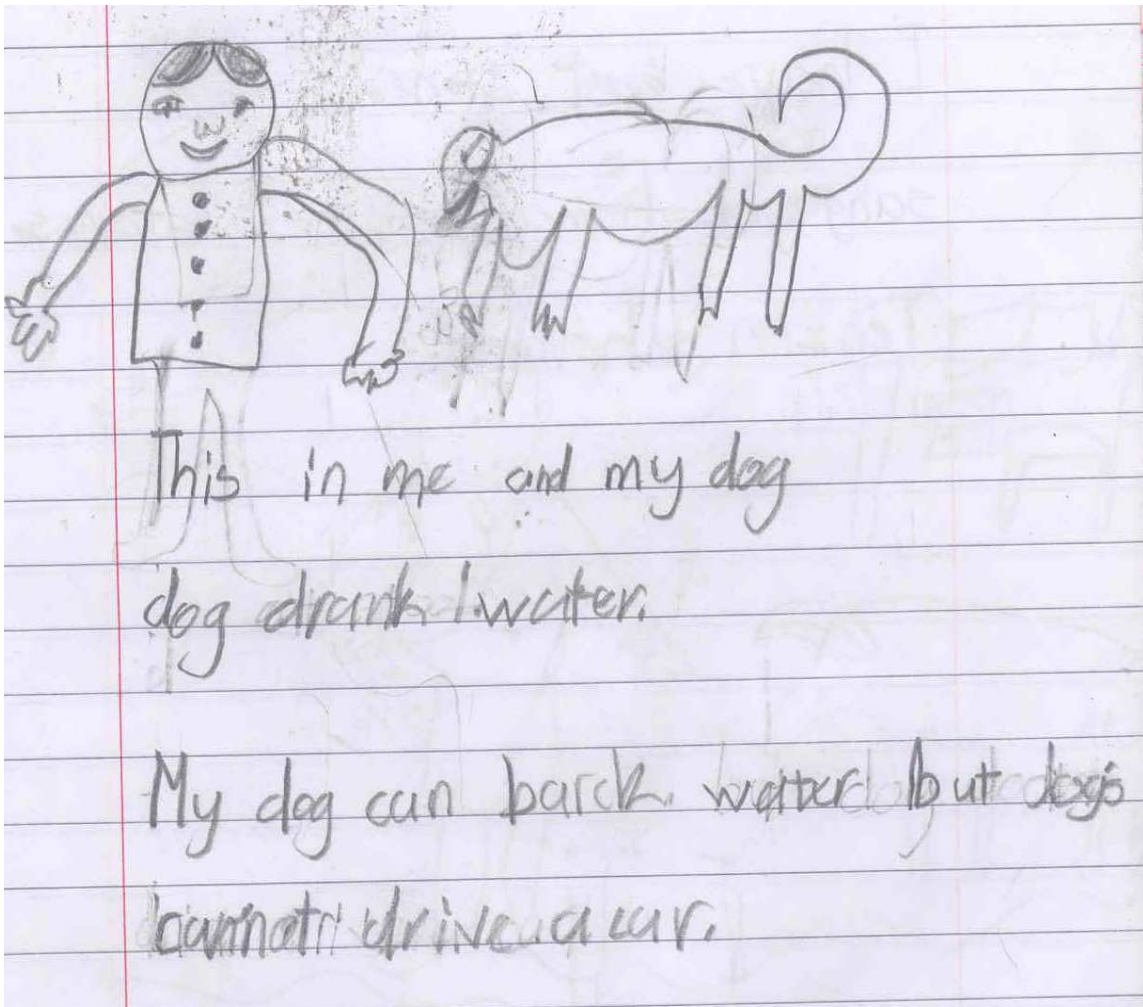 This in me and my dog
dog drank water.
My dog can barck water but dogs
cannot drive a car.